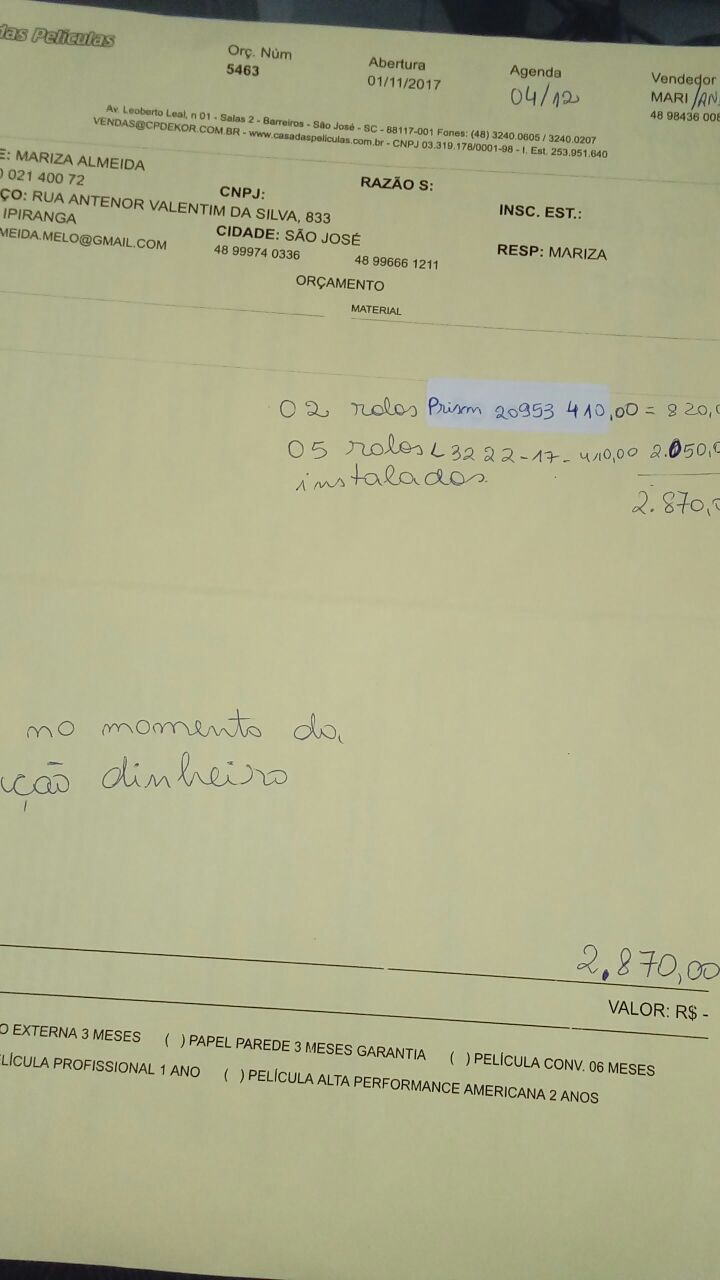 das Películas
Orç. Núm
5463
Abertura
01/11/2017
Agenda
04/12
Vendedor
MARI /AN
48 98436 008
Av. Leoberto Leal, n 01 - Salas 2 - Barreiros - São José - SC - 88117-001 Fones: (48) 3240.0605 / 3240.0207
VENDAS@CPDEKOR.COM.BR - www.casadaspeliculas.com.br - CNPJ 03.319.178/0001-98 - I. Est. 253.951.640
E: MARIZA ALMEIDA
0 021 400 72
CNPJ:
RAZÃO S:
INSC. EST.:
ÇO: RUA ANTENOR VALENTIM DA SILVA, 833
IPIRANGA
CIDADE: SÃO JOSÉ
RESP: MARIZA
MEIDA.MELO@GMAIL.COM
48 99974 0336
48 99666 1211
ORÇAMENTO
MATERIAL
02 rolos Prism 20953 410,00 = 820,0
05 rolos L 3222-17- 410,00 2.050,0
instalados.
2.870,0
no momento da
ução dinheiro
2.870,00
VALOR: R$ -
O EXTERNA 3 MESES ( ) PAPEL PAREDE 3 MESES GARANTIA ( ) PELÍCULA CONV. 06 MESES
ELÍCULA PROFISSIONAL 1 ANO ( ) PELÍCULA ALTA PERFORMANCE AMERICANA 2 ANOS